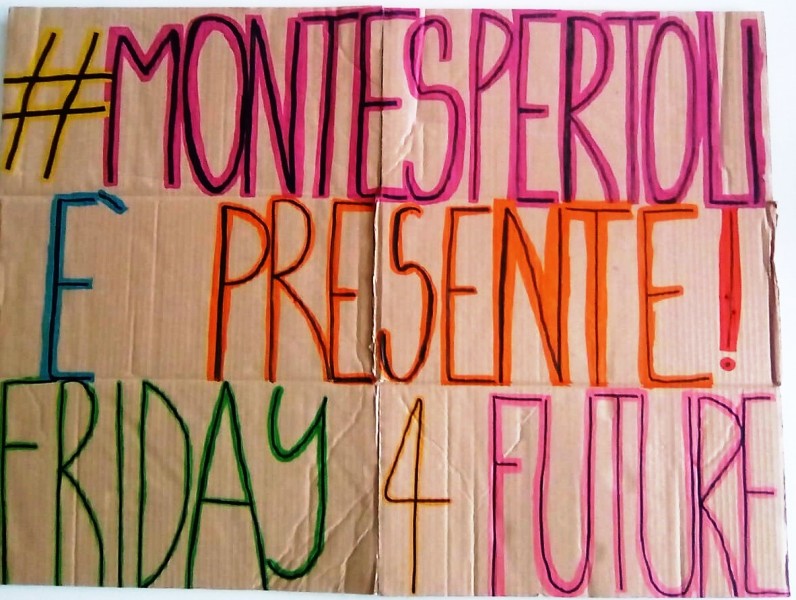 #MONTESPERTOLI
E' PRESENTE!
FRIDAY 4 FUTURE